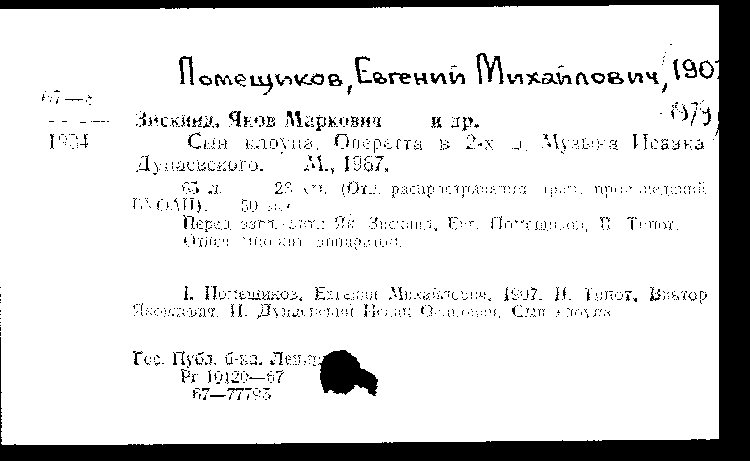 Помещиков, Евгений Михайлович, 1907
1979
67—
1934
Зискинд, Яков Маркович и др.
Сын клоуна. Оперетта в 2-х д. Музыка Исаака
Дунаевского. М., 1967.
65 л. см. (Отд. распространения драм. произведений
50 экз.
Перед загл. авт.: Як. Зискинд, Евг. Помещиков, В. Типот.
аппаратом.
I. Помещиков, Евгений Михайлович, 1907. II. Типот, Виктор
Яковлевич. II. Дунаевский Исаак Осипович. Сын клоуна
Гос. Публ. б-ка. Ленингр
Рг 10120—67
67—77795